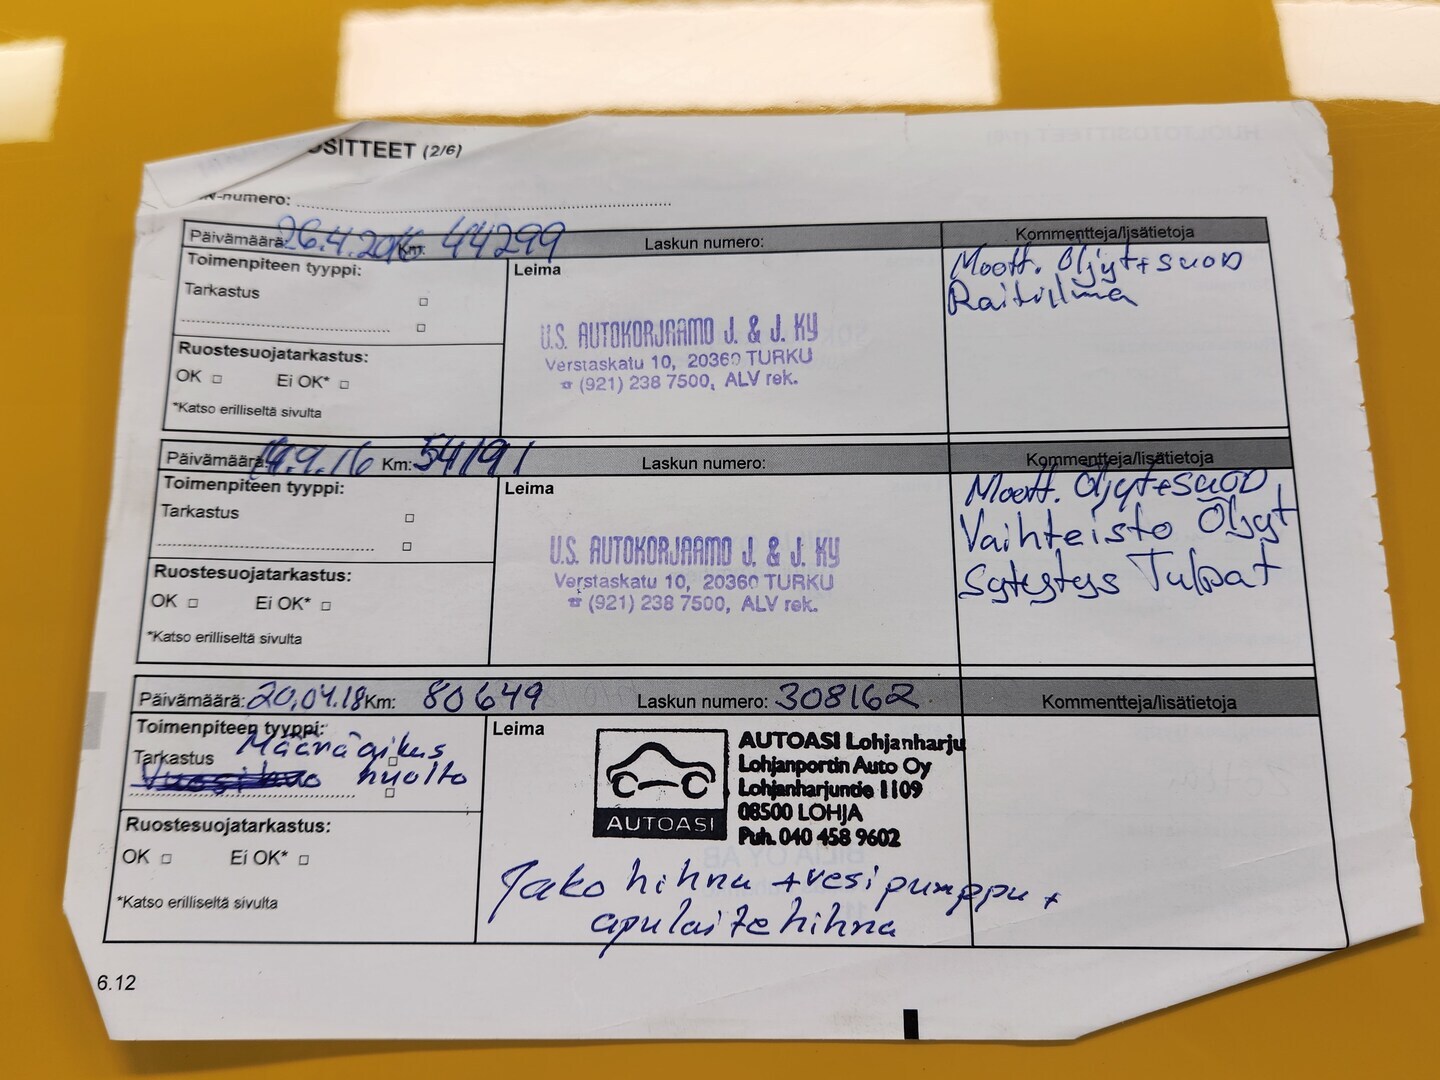 OSITTEET (2/6)
N-numero:
Päivämäärä: 26.4.2016 Km: 44299 Laskun numero: Kommentteja/lisätietoja
Toimenpiteen tyyppi: Leima
Moott. Öljyt+suod
Tarkastus
Raitisilma
U.S. AUTOKORJAAMO J. & J. KY
Verstaskatu 10, 20360 TURKU
☎ (921) 238 7500, ALV rek.
Ruostesuojatarkastus:
OK Ei OK*
*Katso erilliseltä sivulta
Päivämäärä 9.16 Km: 54191 Laskun numero: Kommentteja/lisätietoja
Toimenpiteen tyyppi: Leima
Moott. Öljyt+suod,
Tarkastus
Vaihteisto Öljyt
Sytytys Tulpat
U.S. AUTOKORJAAMO J. & J. KY
Verstaskatu 10, 20360 TURKU
☎ (921) 238 7500, ALV rek.
Ruostesuojatarkastus:
OK Ei OK*
*Katso erilliseltä sivulta
Päivämäärä: 20.04.18 Km: 80649 Laskun numero: 308162 Kommentteja/lisätietoja
Toimenpiteen tyyppi: Leima
Määräaikus
Tarkastus
huolto
AUTOASI
AUTOASI Lohjanharju
Lohjanportin Auto Oy
Lohjanharjuntie 1109
08500 LOHJA
Puh. 040 458 9602
Ruostesuojatarkastus:
OK Ei OK*
*Katso erilliseltä sivulta
Jako hihna + vesipumppu +
apulaitehihna
6.12